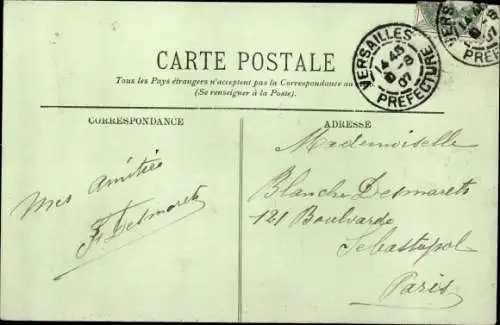 CARTE POSTALE
Tous les Pays étrangers n'acceptent pas la Correspondance au
(Se renseigner à la Poste).
VERSAILLES
PREFECTURE
VERSAILLES
PREF
CORRESPONDANCE
ADRESSE
Mes Amitiés
F. Desmarets
Mademoiselle
Blanche Desmarets
121 Boulvarde
Sebastopol
Paris